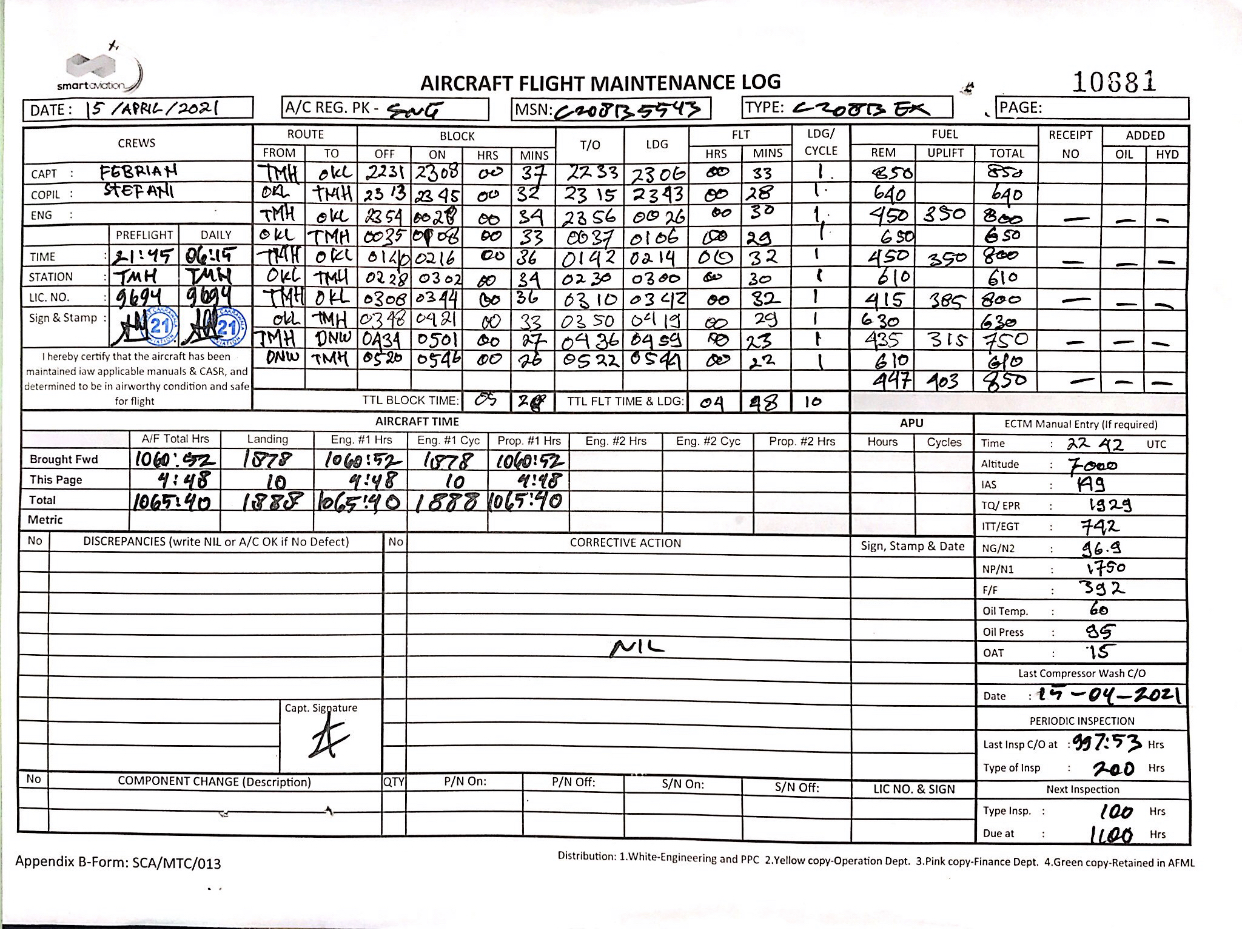 smartaviation
AIRCRAFT FLIGHT MAINTENANCE LOG 10681
DATE: 15/APRIL/2021 A/C REG. PK - SNG MSN: C208B5543 TYPE: C208B EX PAGE:
CREWS ROUTE BLOCK T/O LDG FLT LDG/CYCLE FUEL RECEIPT NO ADDED
FROM TO OFF ON HRS MINS HRS MINS REM UPLIFT TOTAL OIL HYD
CAPT : FEBRIAN TMH OKL 2231 2308 00 37 2233 2306 00 33 1 850 850
COPIL : STEFANI OKL TMH 2313 2345 00 32 2315 2343 00 28 1 640 640
ENG : TMH OKL 2354 0028 00 34 2356 0026 00 30 1 450 350 800 — — —
PREFLIGHT DAILY OKL TMH 0035 0108 00 33 0037 0106 00 29 1 650 650
TIME : 21:45 06:15 TMH OKL 0140 0216 00 36 0142 0214 00 32 1 450 350 800 — — —
STATION : TMH TMH OKL TMH 0228 0302 00 34 0230 0300 00 30 1 610 610
LIC. NO. : 9694 9694 TMH OKL 0308 0344 00 36 0310 0342 00 32 1 415 385 800 — — —
Sign & Stamp : 21 21 OKL TMH 0348 0421 00 33 0350 0419 00 29 1 630 630
TMH DNW 0434 0501 00 27 0436 0459 00 23 1 435 315 750 — — —
I hereby certify that the aircraft has been DNW TMH 0520 0546 00 26 0522 0544 00 22 1 610 610
maintained iaw applicable manuals & CASR, and 447 403 850 — — —
determined to be in airworthy condition and safe
for flight TTL BLOCK TIME: 05 28 TTL FLT TIME & LDG: 04 48 10
AIRCRAFT TIME APU ECTM Manual Entry (If required)
A/F Total Hrs Landing Eng. #1 Hrs Eng. #1 Cyc Prop. #1 Hrs Eng. #2 Hrs Eng. #2 Cyc Prop. #2 Hrs Hours Cycles Time : 22 42 UTC
Brought Fwd 1060:52 1878 1060:52 1878 1060:52 Altitude : 7000
This Page 4:48 10 4:48 10 4:48 IAS : 149
Total 1065:40 1888 1065:40 1888 1065:40 TQ/ EPR : 1929
Metric ITT/EGT : 742
No DISCREPANCIES (write NIL or A/C OK if No Defect) No CORRECTIVE ACTION Sign, Stamp & Date NG/N2 : 96.9
NP/N1 : 1750
F/F : 392
Oil Temp. : 60
Oil Press : 95
NIL OAT : 15
Last Compressor Wash C/O
Date : 15-04-2021
Capt. Signature PERIODIC INSPECTION
Last Insp C/O at : 997:53 Hrs
Type of Insp : 200 Hrs
No COMPONENT CHANGE (Description) QTY P/N On: P/N Off: S/N On: S/N Off: LIC NO. & SIGN Next Inspection
Type Insp. : 100 Hrs
Due at : 1100 Hrs
Appendix B-Form: SCA/MTC/013 Distribution: 1.White-Engineering and PPC 2.Yellow copy-Operation Dept. 3.Pink copy-Finance Dept. 4.Green copy-Retained in AFML